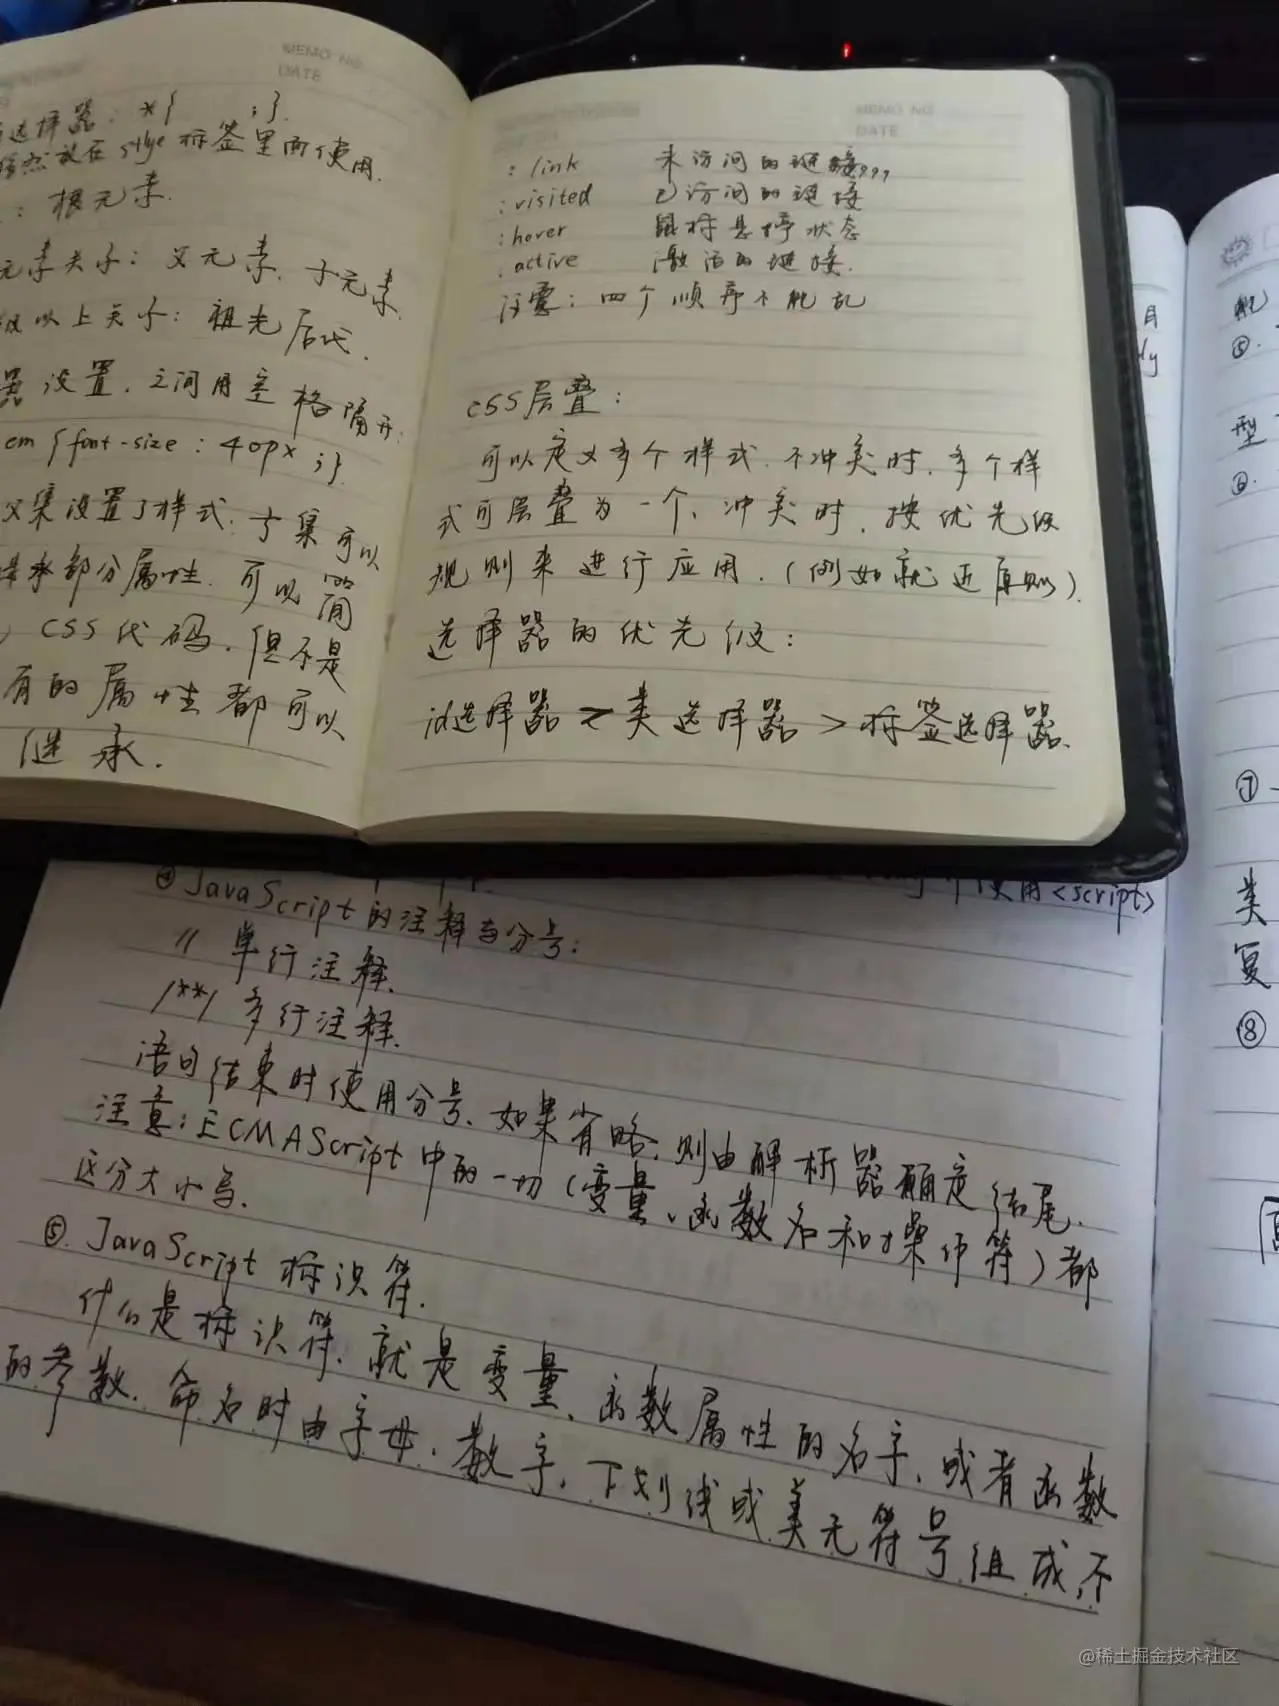 MEMO NO.
DATE
选择器：*{ ;}.
然放在style标签里面使用.
：根元素.
元素关系：父元素、子元素.
以上关系：祖先后代.
器设置.之间用空格隔开：
em{font-size：40px ;}.
父集设置了样式.子集可以
承部分属性.可以简
CSS代码.但不是
有的属性都可以
继承.
MEMO NO.
DATE
:link 未访问的链接,,,
:visited 已访问的链接
:hover 鼠标悬停状态
:active 激活的链接.
注意：四个顺序不能乱
CSS层叠：
可以定义多个样式.不冲突时.多个样
式可层叠为一个、冲突时.按优先级
规则来进行应用.(例如就近原则).
选择器的优先级：
id选择器>类选择器>标签选择器.
使用<script>
④JavaScript的注释与分号：
// 单行注释.
/**/ 多行注释.
语句结束时使用分号、如果省略.则由解析器确定结尾.
注意：ECMAScript中的一切(变量、函数名和操作符)都
区分大小写.
⑤.JavaScript标识符.
什么是标识符、就是变量、函数属性的名字、或者函数
的参数.命名时由字母、数字、下划线或美元符号组成.不
月
ly
⑤.
型
⑥.
⑦
类
复
⑧
@稀土掘金技术社区